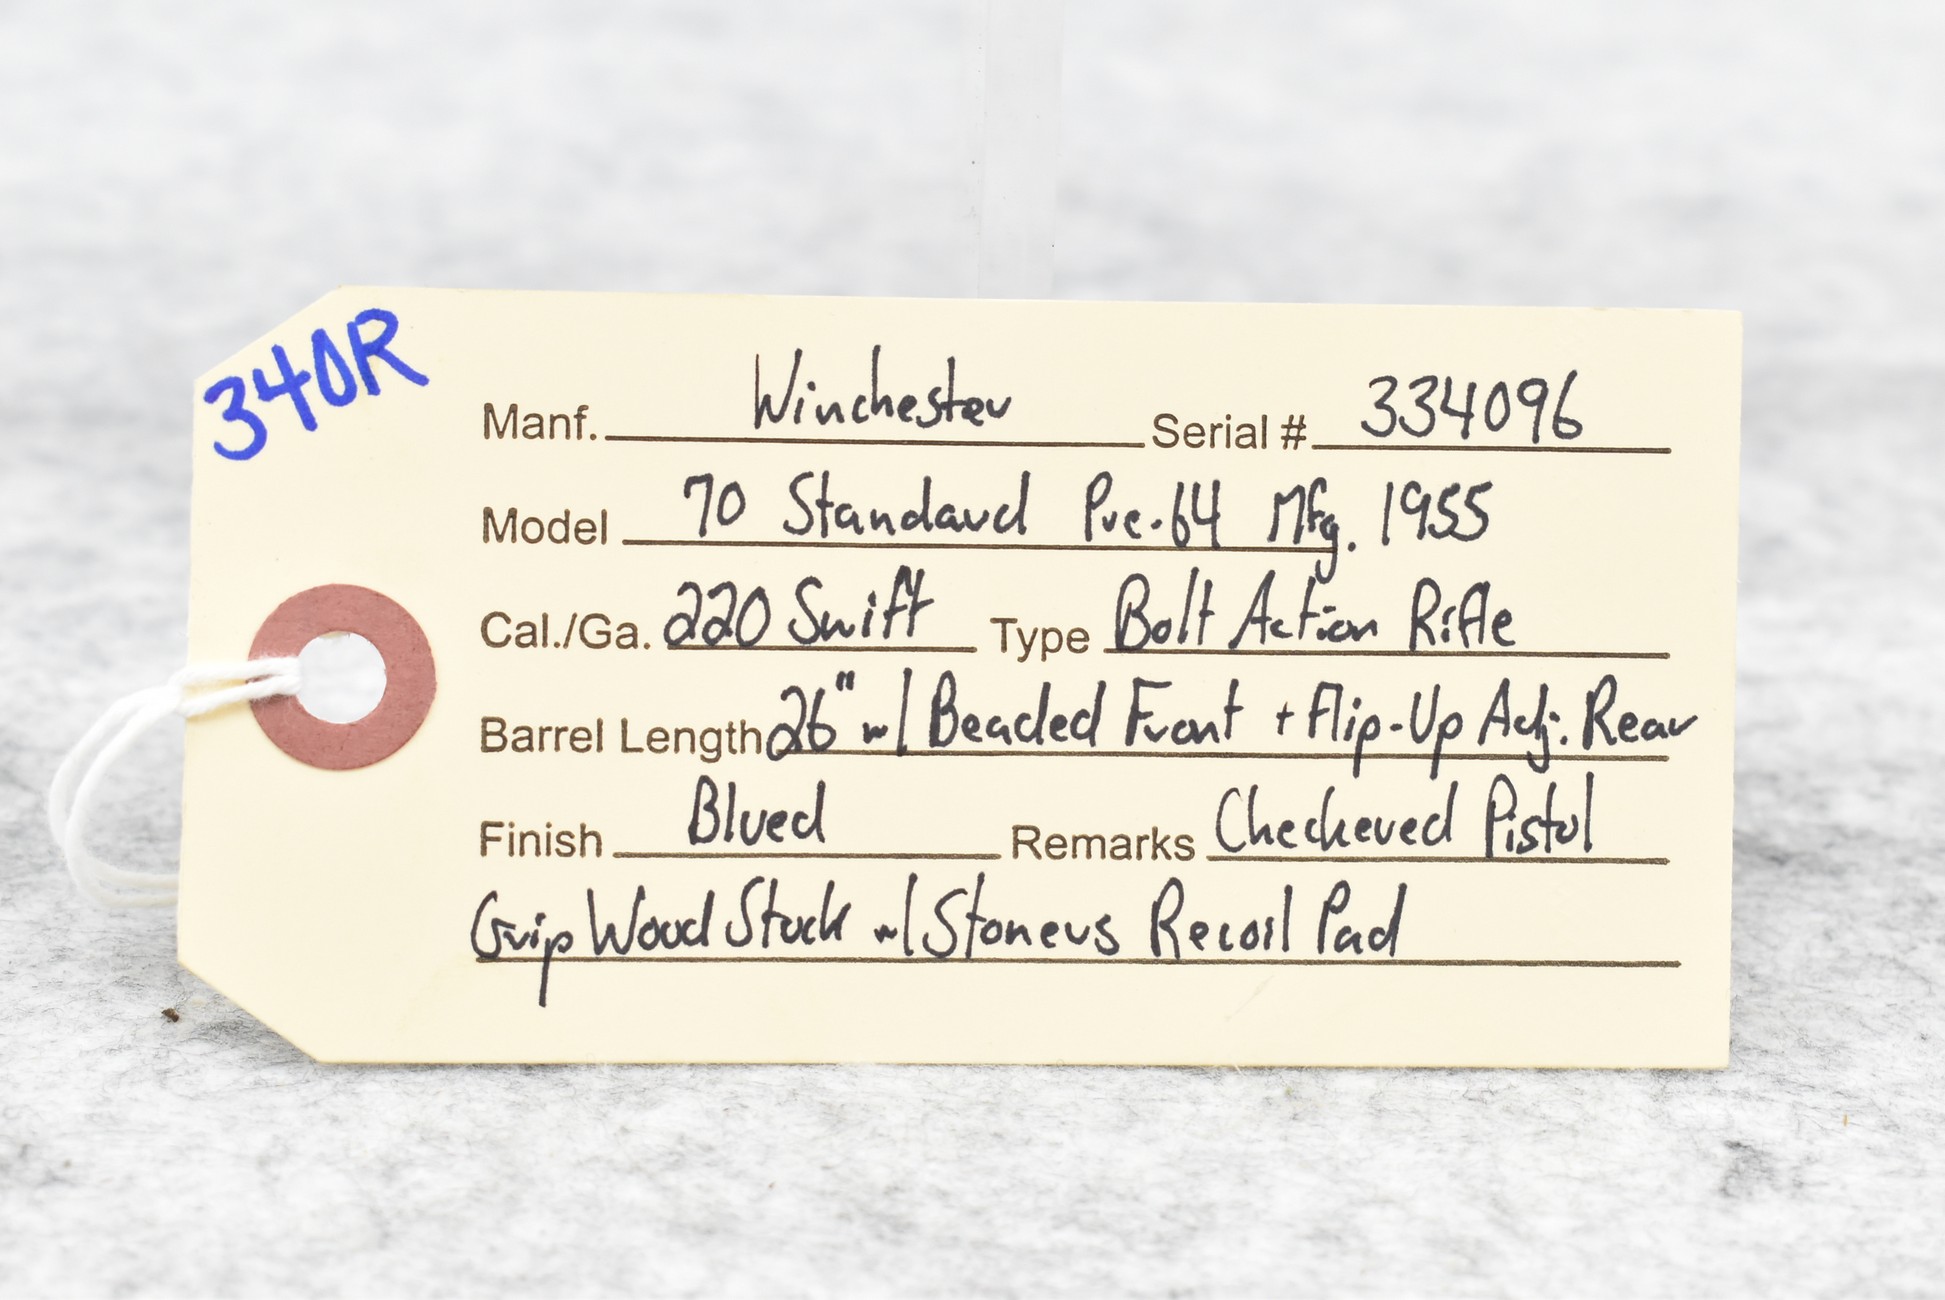 340R
Manf. Winchester Serial # 334096
Model 70 Standard Pre-64 Mfg. 1955
Cal./Ga. 220 Swift Type Bolt Action Rifle
Barrel Length 26" w/ Beaded Front + Flip-Up Adj. Rear
Finish Blued Remarks Checkered Pistol
Grip Wood Stock w/ Stoners Recoil Pad